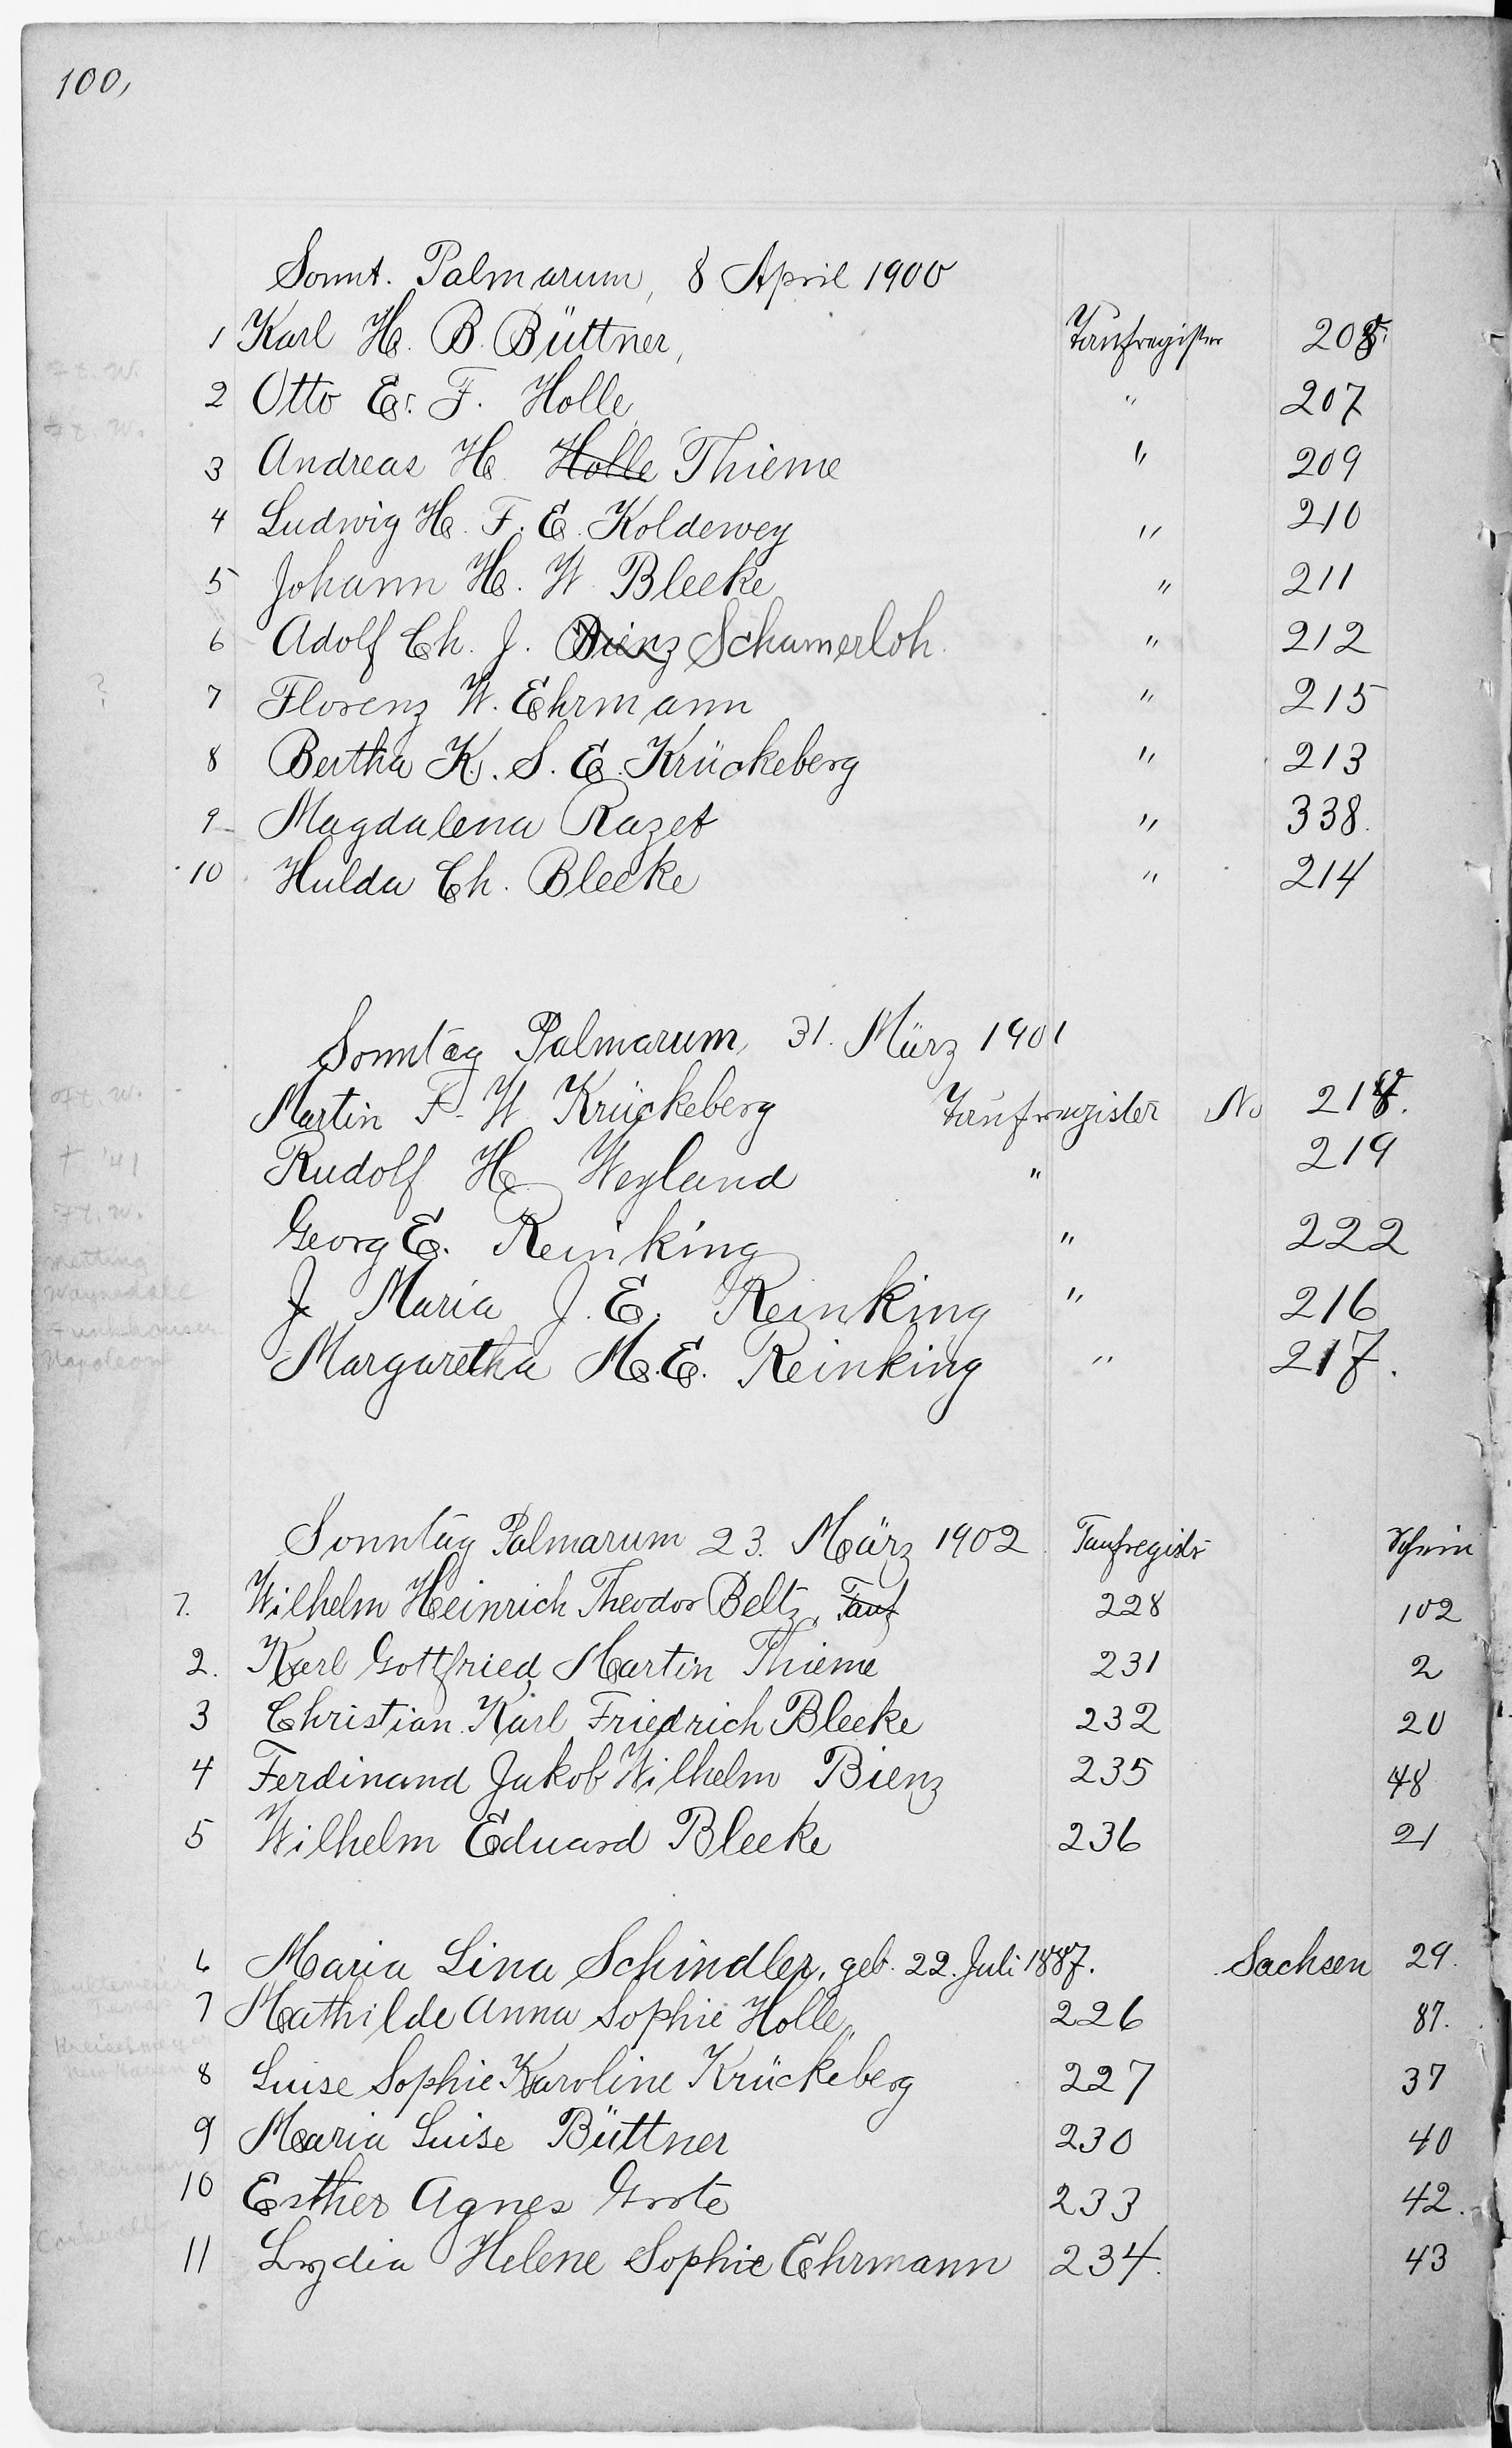 100,
Sonnt. Palmarum, 8 April 1900
1 Karl H. B. Büttner, Taufregister 208.
Ft. W.
2 Otto E. F. Holle " 207
Ft. W.
3 Andreas H. Holle Thieme " 209
4 Ludwig H. F. E. Koldewey " 210
5 Johann H. W. Bleeke " 211
6 Adolf Ch. J. Bienz Schamerloh. " 212
? 7 Florenz W. Ehrmann " 215
8 Bertha K. S. E. Krückeberg " 213
9 Magdalena Razet " 338.
10 Hulda Ch. Bleeke " 214
Sonntag Palmarum, 31. März 1901
Ft. W. Martin F. W. Krückeberg Taufregister No 218.
+ '41 Rudolf H. Weyland " 219
Ft. W. Georg E. Reinking " 222
Waynedale J. Maria J. E. Reinking " 216
Napoleon Margaretha M. E. Reinking " 217.
Sonntag Palmarum 23. März 1902 Taufregistr Schein
1. Wilhelm Heinrich Theodor Beltz, Tauf 228 102
2. Karl Gottfried Martin Thieme 231 2
3 Christian Karl Friedrich Bleeke 232 20
4 Ferdinand Jakob Wilhelm Bienz 235 48
5 Wilhelm Eduard Bleeke 236 21
6 Maria Lina Schindler, geb. 22. Juli 1887. Sachsen 29.
7 Mathilde Anna Sophie Holle, 226 87.
New Haven
8 Luise Sophie Karoline Krückeberg 227 37
9 Maria Luise Büttner 230 40
10 Esther Agnes Grote 233 42.
11 Lydia Helene Sophie Ehrmann 234. 43